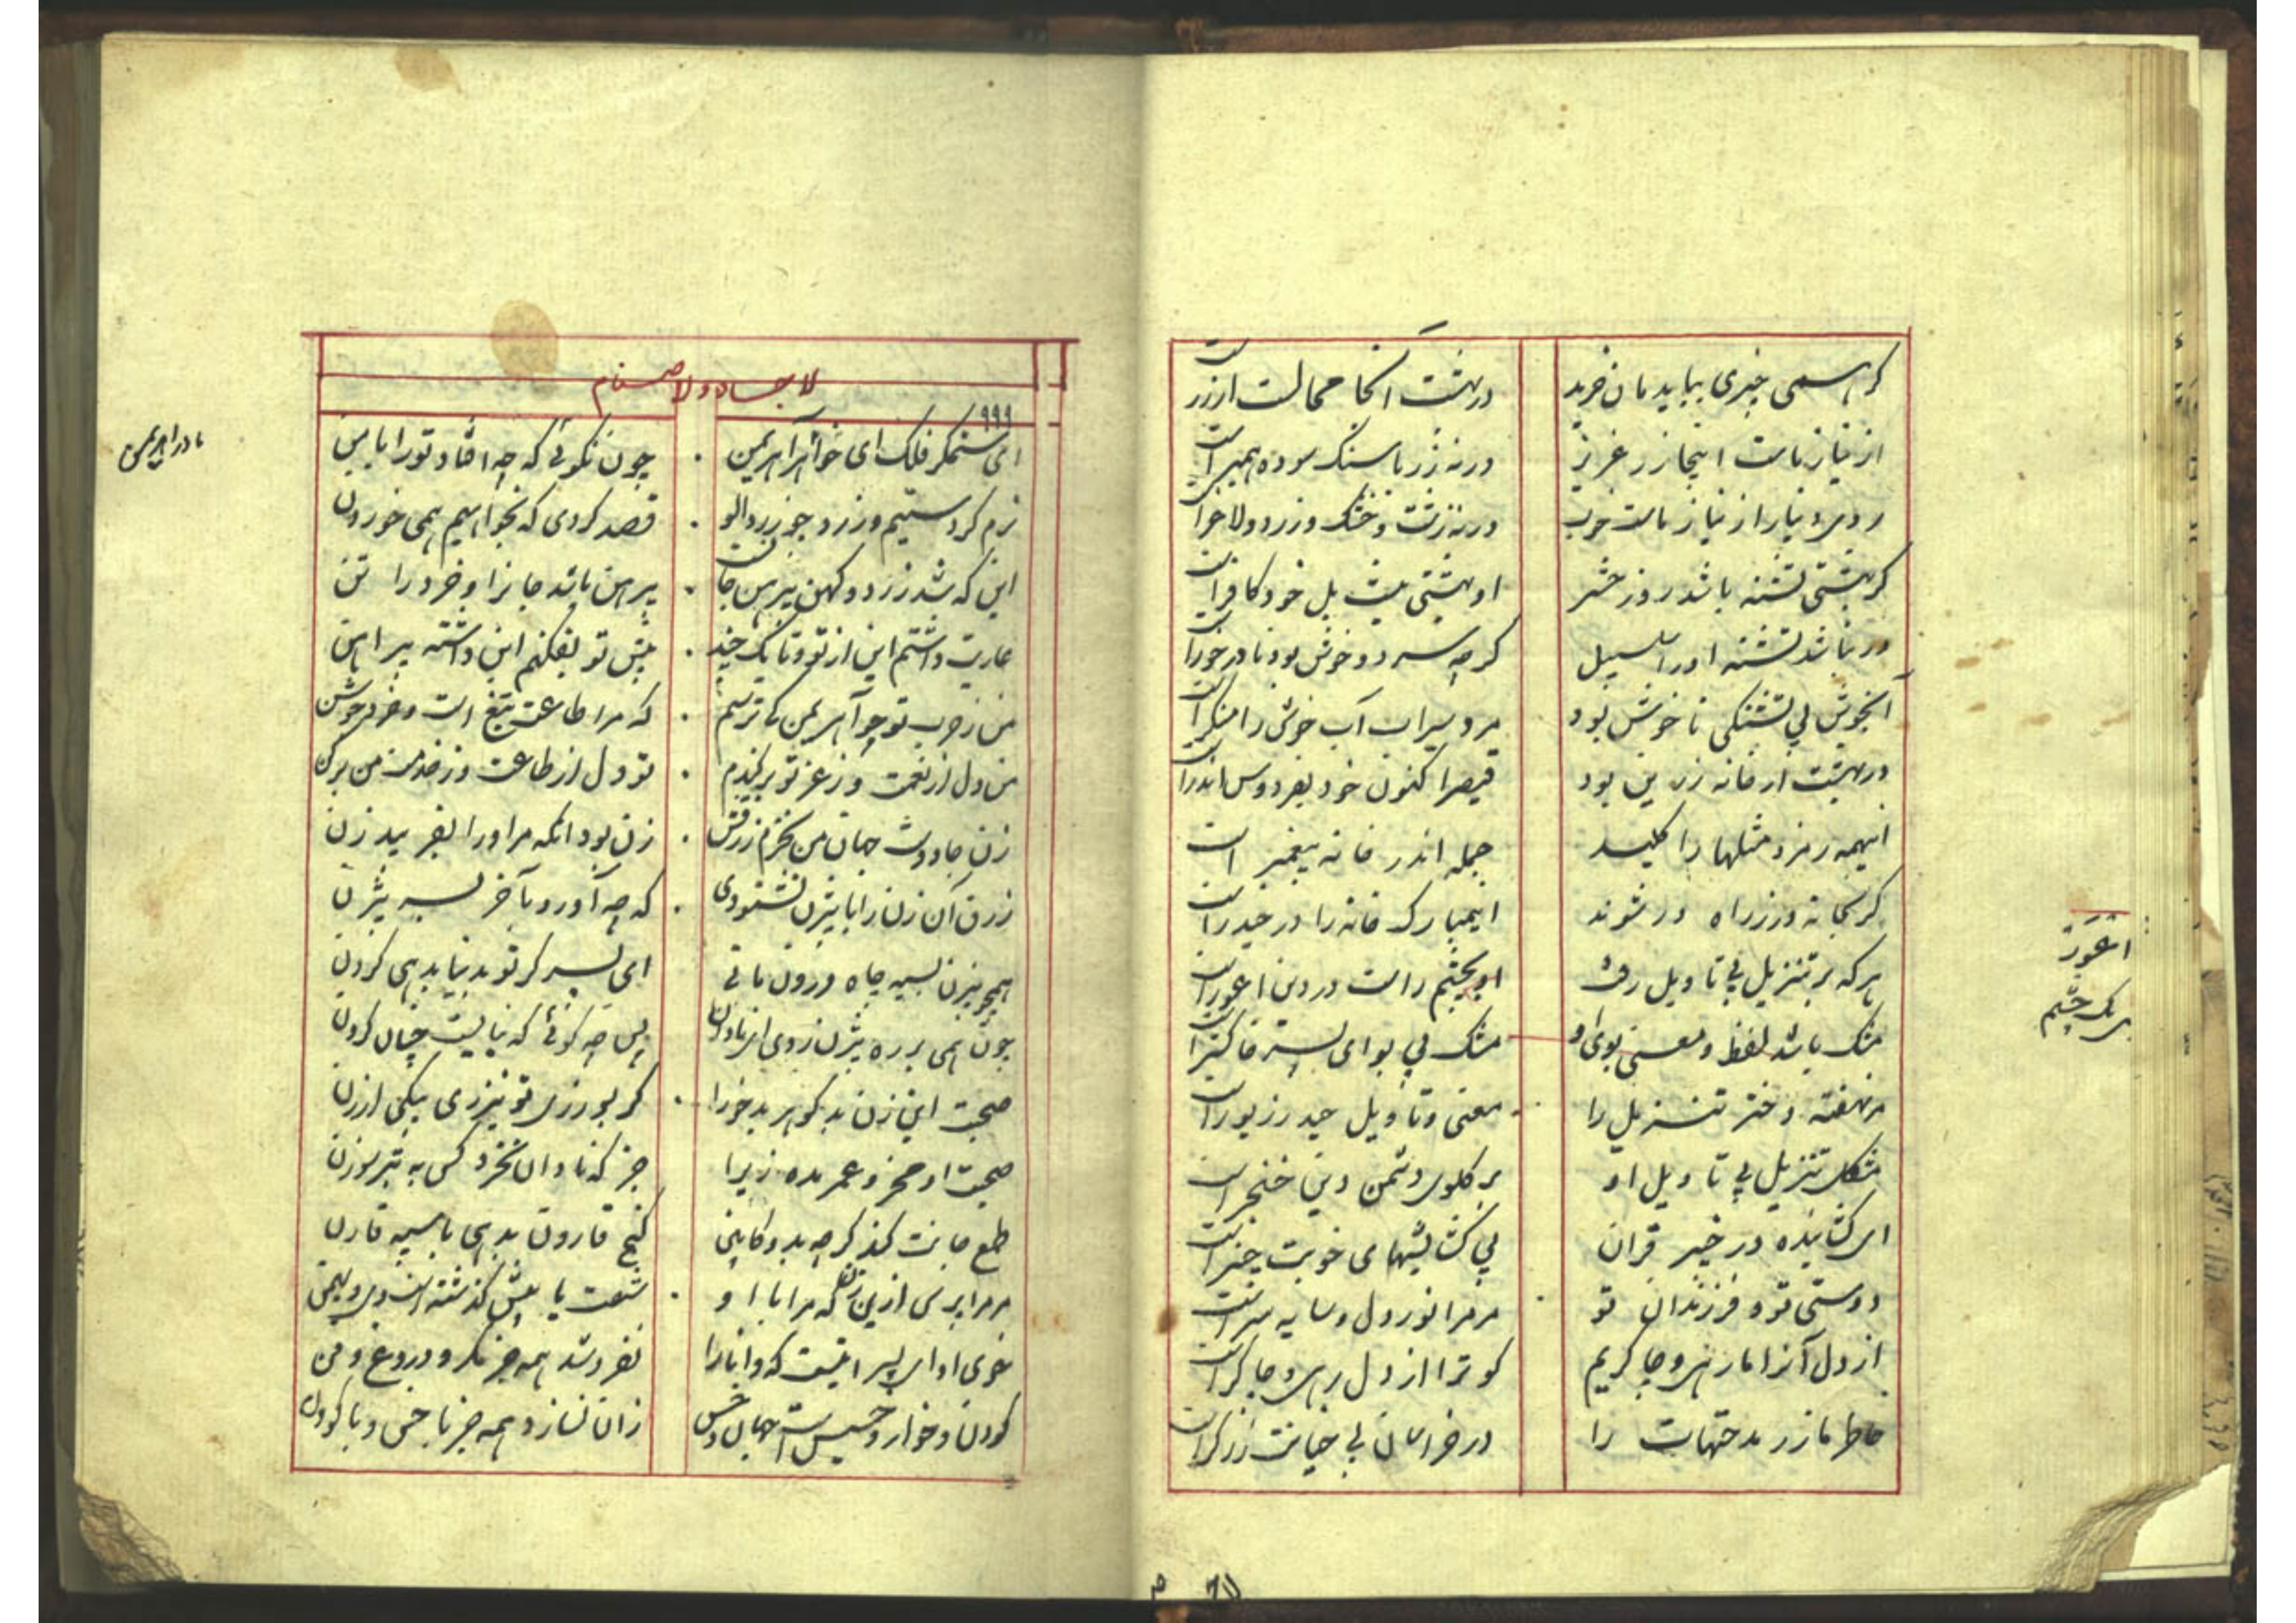 کر همی چیزی بباید مان خرید
در بهشت آنکجا محالست ار زر است
از نیاز ماست اینجا زر عزیز
ورنه زر با سنک سوده همبر است
روی دینار از نیاز ماست خوب
ورنه زشت و خشک و زرد و لاغر است
کر بهشتی تشنه باشد روز حشر
او بهشتی نیست بل خود کافر است
ور نباشد تشنه او را سلسبیل
کرچه سرد و خوش بود نادرخور است
آبخوش بی تشنکی ناخوش بود
مرد سیراب آب خوش را منکر است
در بهشت ار خانه زرین بود
قیصر اکنون خود بفردوس اندر است
اینهمه رمز و مثلها را کلید
جمله اندر خانه پیغمبر است
کر بخانه در ز راه در شوند
این مبارک خانه را در حیدر است
هر که بر تنزیل بی تاویل رفت
او بچشم راست در دین اعور است
مشک باشد لفظ و معنی بوی او
مشک بی بو ای پسر خاکستر است
مر نهفته دختر تنزیل را
معنی و تاویل حیدر زیور است
مشکل تنزیل بی تاویل او
بر کلوی دشمن دین خنجر است
ای کشاینده در خیبر قران
بی کشایشهای خوبت خیبر است
دوستی تو و فرزندان تو
مر مرا نور دل و سایه سر است
از دل آنرا ما رهی و چاکریم
کو ترا از دل رهی و چاکر است
خاطر ما زر مدحتهات را
در خراسان بی خیانت زرکر است
اعور
یک چشم
لا جساد و لا صنام
ای ستمکر فلک ای خواهر آهریمن
چون نکوئی که چه افتاد تو را با من
نرم کردستیم و زرد چو زردالو
قصد کردی که بخواهیم همی خوردن
این که شد زرد و کهن پیرهن جان است
پیرهن باشد جانرا و خرد را تن
عاریت داشتم این از تو تا یک چند
پیش تو بفکنم این داشته پیراهن
من ز حرب تو چو آهریمن کی ترسم
که مرا طاعت تیغ است و خرد جوشن
من دل از نعمت و ز عز تو برکندم
تو دل از طاعت و ز خدمت من برکن
زن جادوست جهان من نخرم زرقش
زن بود آنکه مر او را بفریبد زن
زرق آن زن را با بیژن نشنودی
که چه آورد بآخر بسر بیژن
همچو بیژن بسیه چاه درون مانی
ای پسر کر تو بدنیا بدهی کردن
چون همی بر ره بیژن روی ای نادان
پس چه کوئی که نبایست چنان کردن
صحبت این زن بدکوهر بدخو را
کر بورزی تو نیرزی بیکی ارزن
صحبت او مخر و عمر مده زیرا
جز که نادان نخرد کس به تبر سوزن
طمع جانت کند کر چه بدو کابین
کنج قارون بدهی یا سپه قارن
مر مرا برس ازین زن که مرا با او
شصت یا بیش کذشته است دی و بهمن
خوی او ای پسر اینست که دانا را
نفروشد همه جز مکر و دروغ و فن
کودن و خوار و خسیس است جهان و خس
زان نسازد همه جز با خس و با کودن
مادر اهریمن